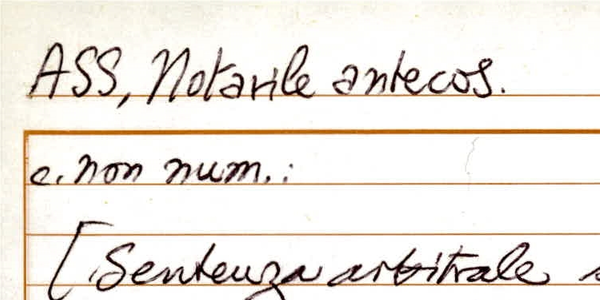 ASS, Notarile antecos.
c. non num.:
[Sentenza arbitrale